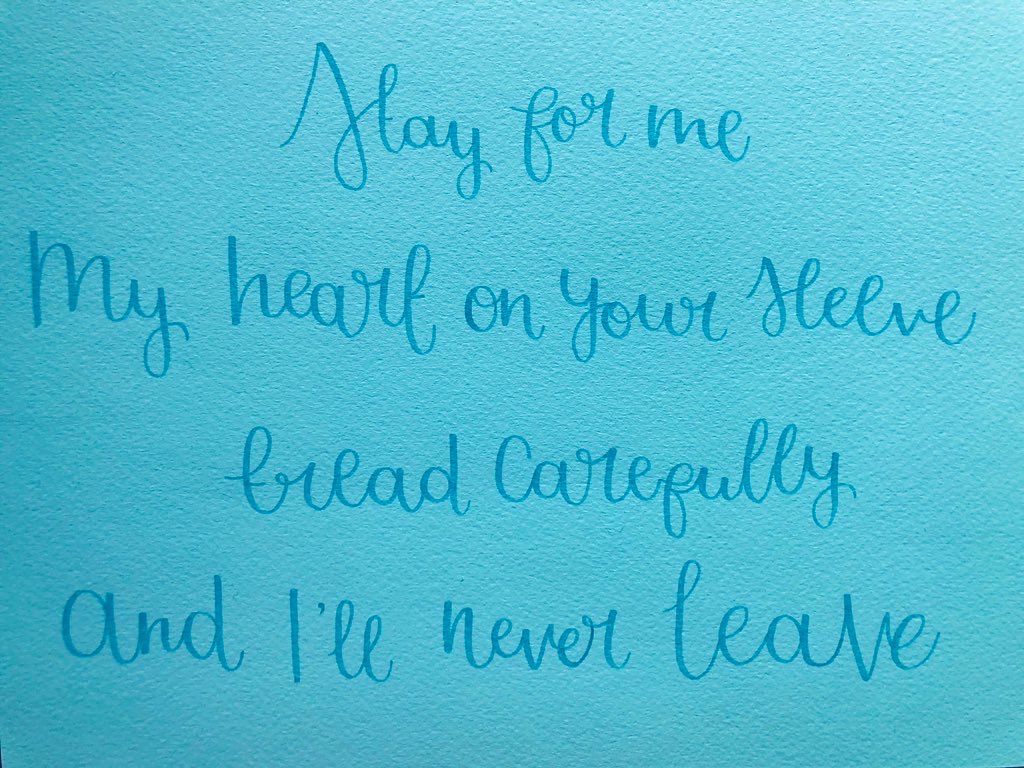 Stay for me
My heart on your sleeve
tread carefully
and I'll never leave